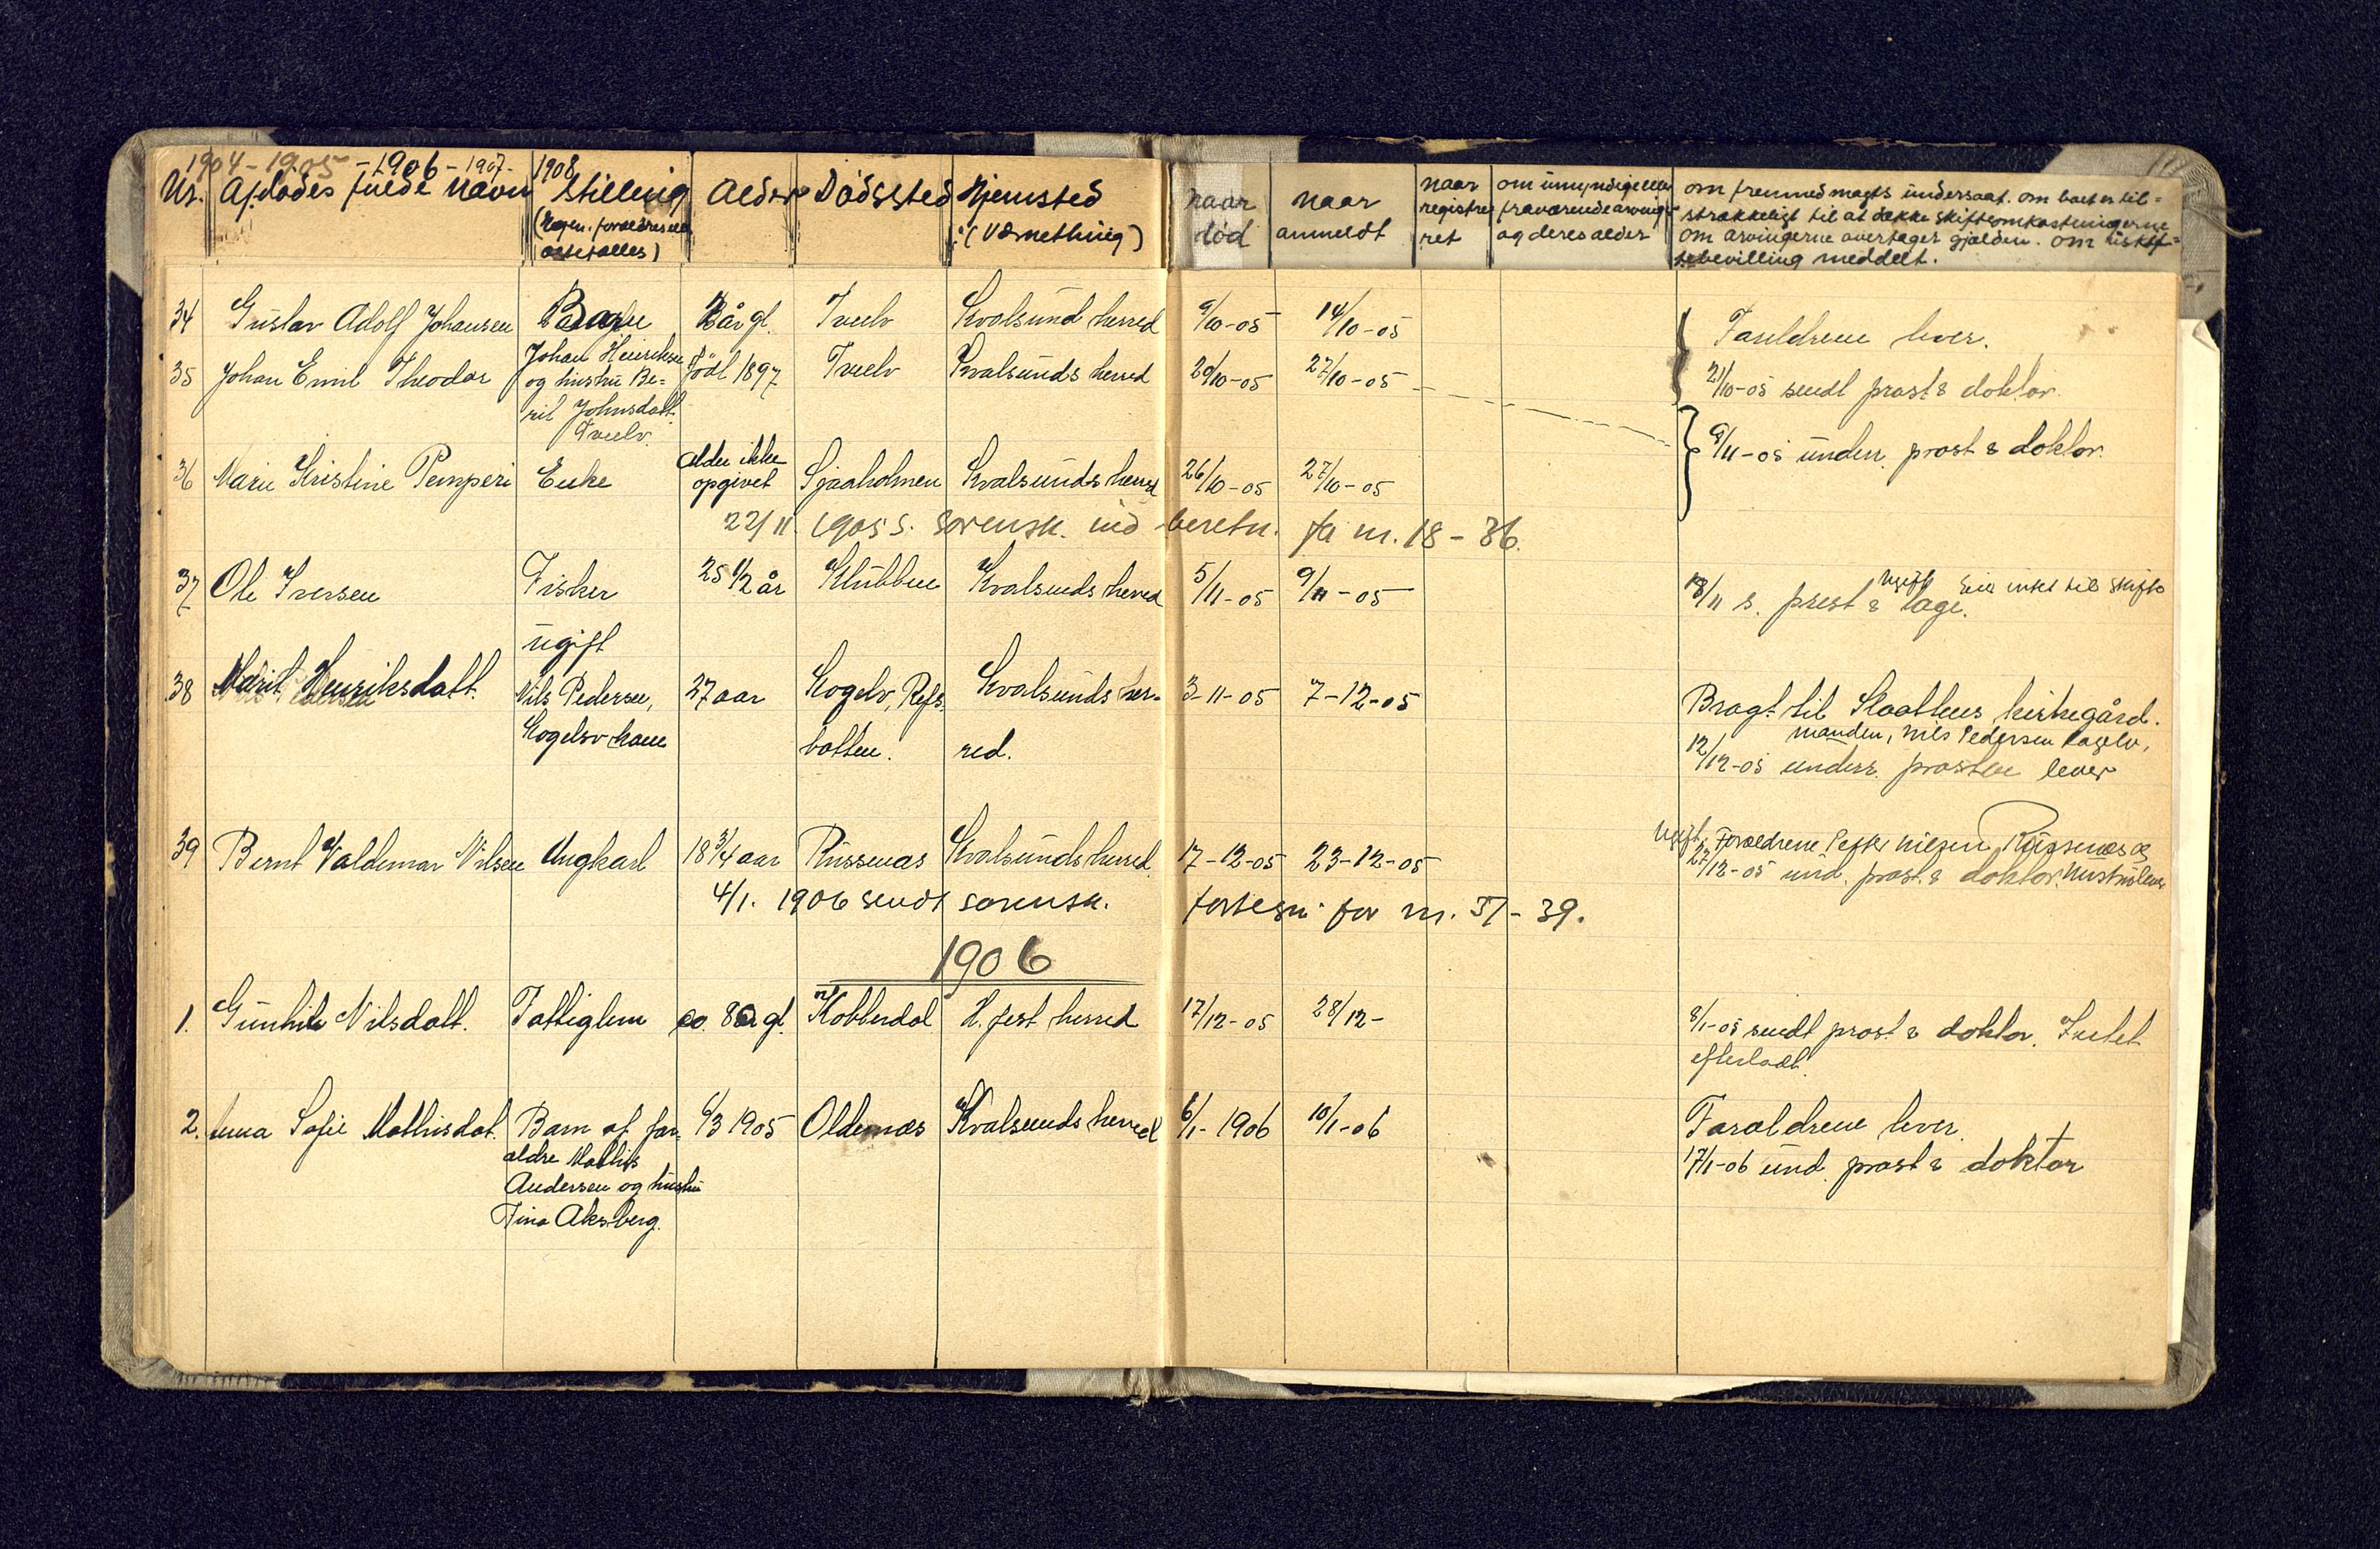 1904-1905-1906-1907-1908
Nr. Afdødes fulde navn Stilling Alder Dødssted Hjemsted naar død naar anmeldt naar registreret om umyndige eller fraværende arvinger og deres alder
(værnething)
om fremmed magts undersaat. om boet er til=
strækkeligt til at dække skifteomkostningerne
om arvingerne overtager gjælden. om uskif=
tebevilling meddelt.
34 Gustav Adolf Johansen år gl. Kvalsund herred 9/10-05 14/10-05 Forældrene lever.
35 Johan Emil Theodor Johan Henriksen Født 1897 Kvalsunds herred 20/10-05 27/10-05 21/10-05 sendt prost & doktor.
og hustru Be=
rit Johnsdatt.
36 Marie Kristine Pemperi Enke Alder ikke opgivet Sjaaholmen Kvalsunds herred 26/10-05 27/10-05 9/11-05 underr. prost & doktor.
22/11 1905 s. sorensk. indberetn. fa nr. 18-36.
37 Ole Iversen Fisker 25 1/2 år Klubben Kvalsunds herred 5/11-05 9/11-05 13/11 s. prest & læge. ugift Eier intet til skifte
ugift
38 Marit Henriksdatt. Nils Pedersen, 27 aar Kogelv, Refs- Kvalsunds her- 3-11-05 7-12-05 Bragt til kirkegård.
Kogelv kone botten. red. manden, Nils Pedersen Kogelv,
12/12-05 underr. prosten lever
39 Bernt Valdemar Nilsen Ungkarl 18 3/4 aar Russenæs Kvalsunds herred. 17-12-05 23-12-05 ugift. Forældrene Nilsen Russenæs og
27/12-05 und. prost & doktor. hustru lever
4/1. 1906 sendt sorensk. fortegn. for nr. 37-39.
1906
1. Gunhild Nilsdatt. Fattiglem ca. 80 gl. Kobberdal H.fest herred 17/12-05 28/12- 8/1-05 sendt prost & doktor. Intet
efterladt.
2. Anna Sofie Mathisdat. Barn af for- 6/3 1905 Oldernæs Kvalsunds herred 6/1-1906 10/1-06 Forældrene lever.
ældre Mathis 17/1-06 und. prost & doktor
Andersen og hustru
Tina Aksberg.